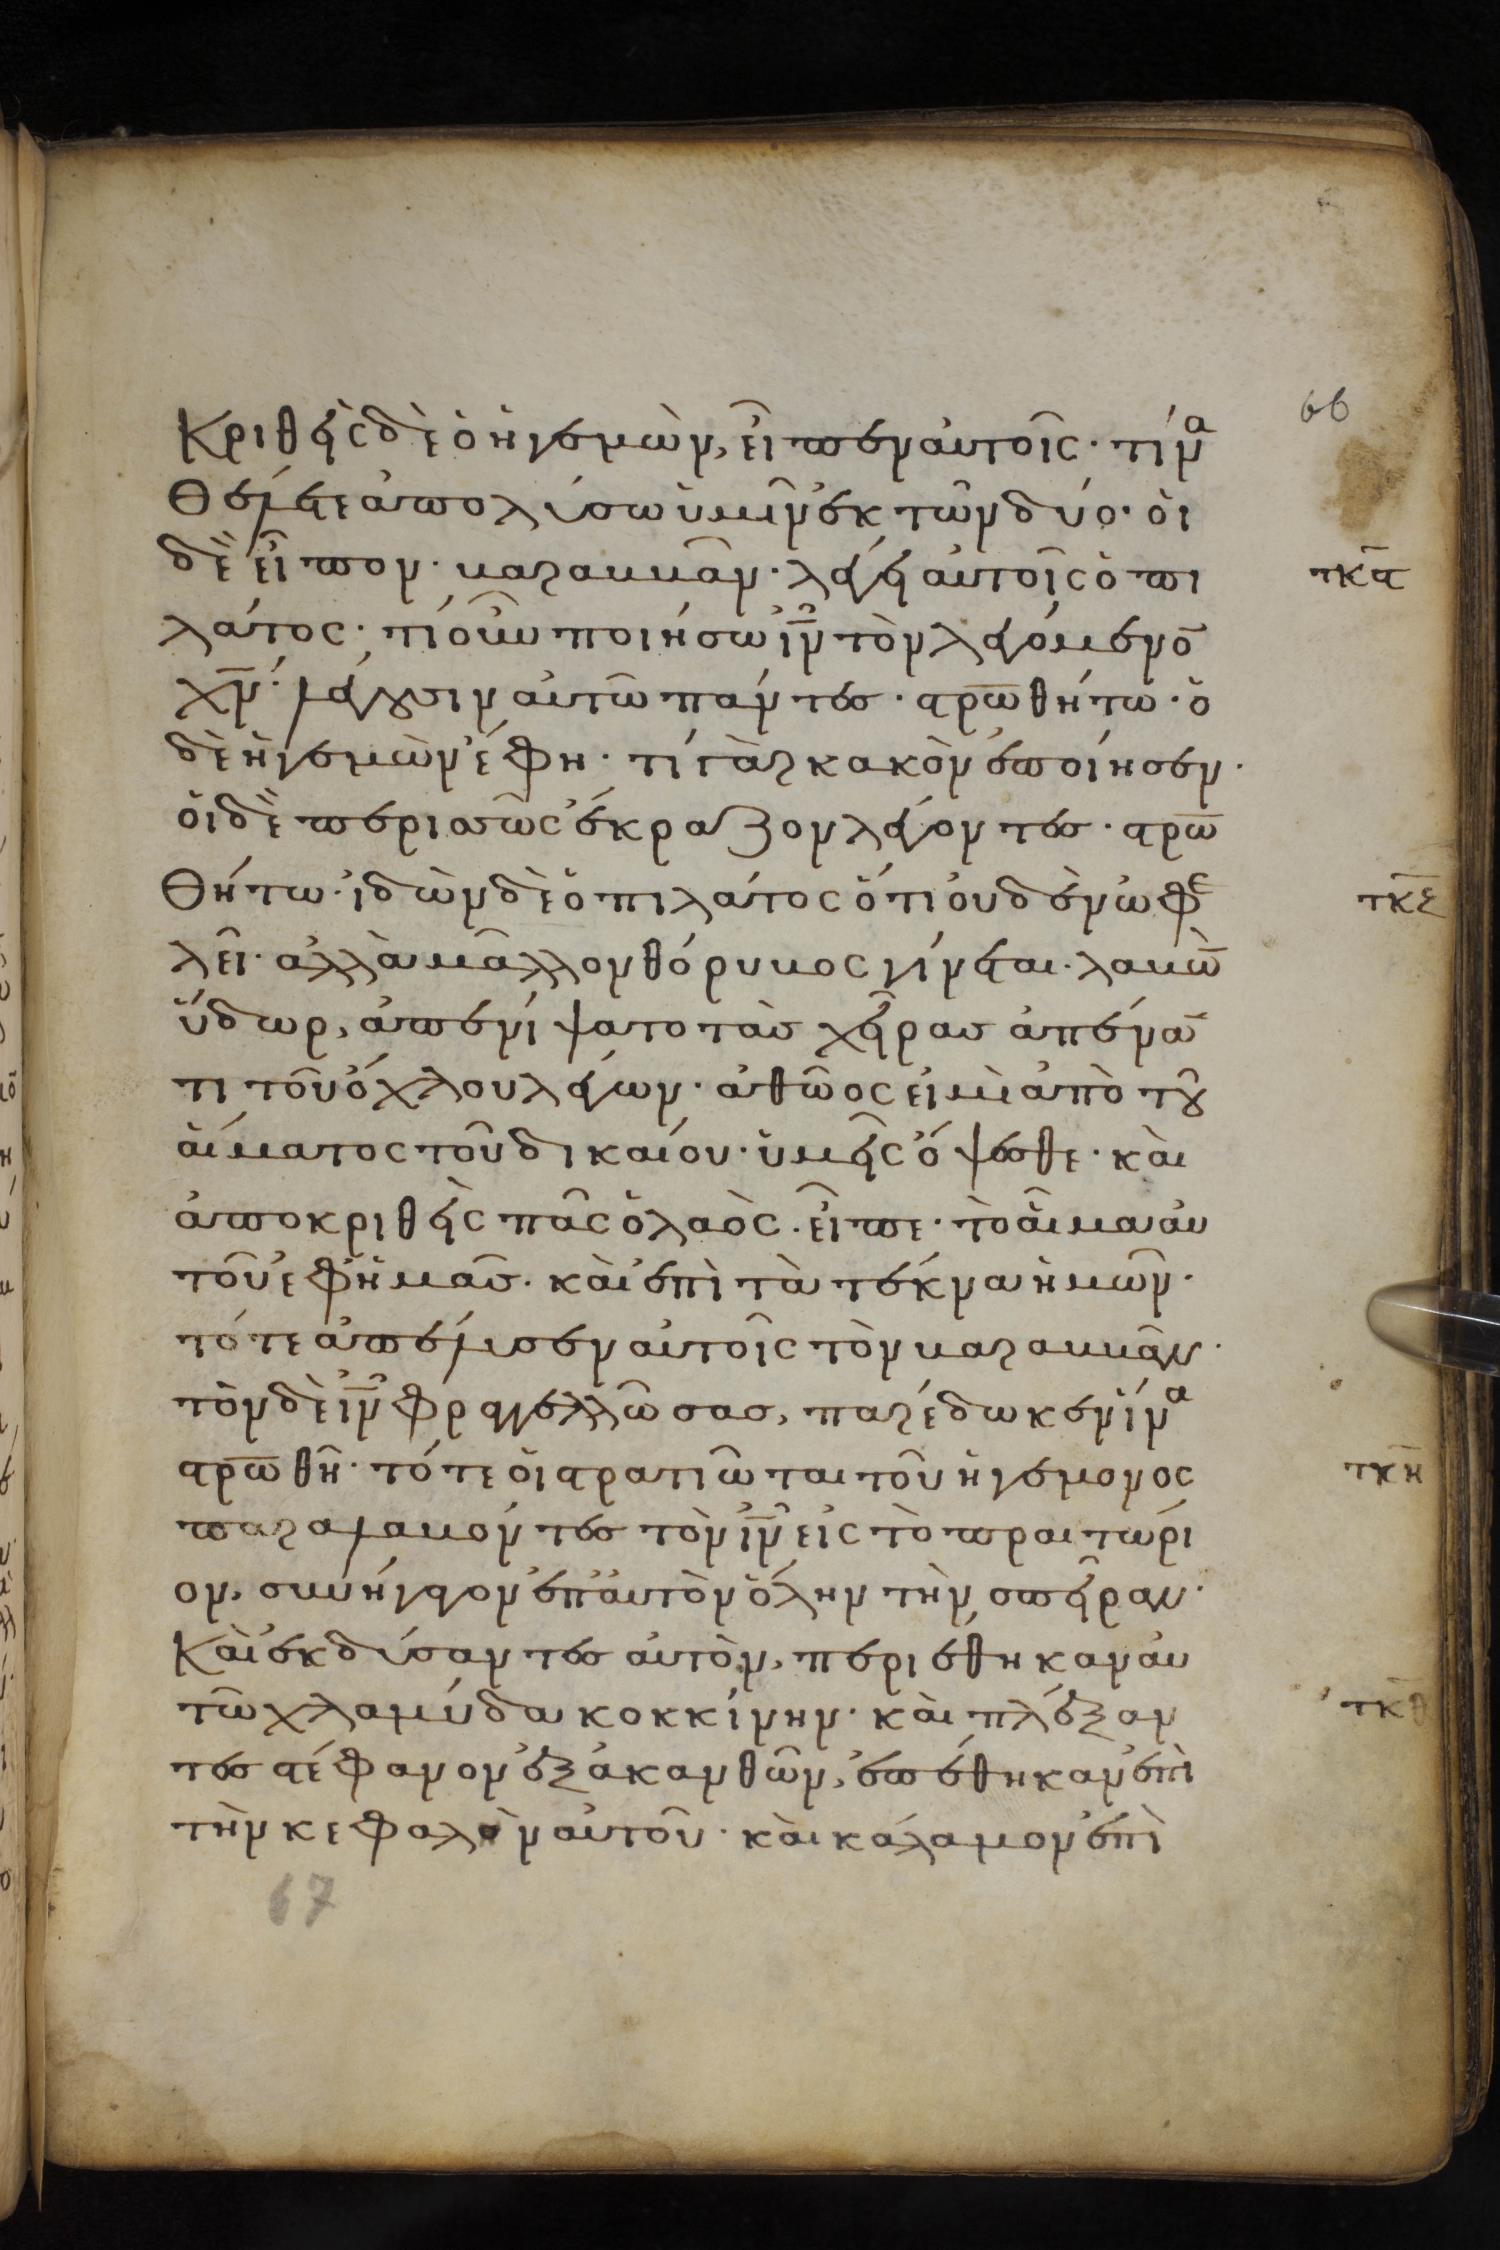 66
Κριθεὶς δὲ ὁ ἡγεμὼν, εἶπεν αὐτοῖς· τίνα
θέλετε ἀπολύσω ὑμῖν ἐκ τῶν δύο· οἱ
δὲ εἶπον· βαραββᾶν· λέγει αὐτοῖς ὁ πι
τκϛ
λάτος· τί οὖν ποιήσω ιν̅ τὸν λεγόμενο̅
χν̅· λέγουσιν αὐτῶ πάντες· στρω̅θήτω· ὁ
δὲ ἡγεμὼν ἔφη· τί γὰρ κακὸν ἐποίησεν·
οἱ δὲ περισσῶς ἔκραζον λέγοντες· στρω̅
θήτω· ἰδὼν δὲ ὁ πιλάτος ὅτι οὐδὲν ὠφε
λεῖ· ἀλλὰ μᾶλλον θόρυβος γίνεται· λαβὼ̅
ὕδωρ, ἀπενίψατο τὰς χεῖρας ἀπέναν
τι τοῦ ὄχλου λέγων· ἀθῶος εἰμὶ ἀπὸ τοῦ
αἵματος τοῦ δικαίου· ὑμεῖς ὄψεσθε· καὶ
ἀποκριθεὶς πᾶς ὁ λαὸς· εἶπε· τὸ αἷμα αὐ
τοῦ ἐφ' ἡμᾶς· καὶ ἐπὶ τὰ τέκνα ἡμῶν·
τότε ἀπέλυσεν αὐτοῖς τὸν βαραββᾶν·
τὸν δὲ ιν̅ φραγελλῶσας, παρέδωκεν ἵνα
στρω̅θῆ· τότε οἱ στρατιῶται τοῦ ἡγεμονος
τκη
παραλαβόντες τὸν ιν̅ εἰς τὸ πραιτώρι
ον, συνήγαγον ἐπ' αὐτὸν ὅλην τὴν σπεῖραν·
Καὶ ἐκδύσαντες αὐτὸν, περιέθηκαν αὐ
τῶ χλαμύδα κοκκίνην· καὶ πλέξαν
τκθ
τες στέφανον ἐξ ἀκανθῶν, ἐπέθηκαν ἐπὶ
τὴν κεφαλὴν αὐτοῦ· καὶ κάλαμον ἐπὶ
67